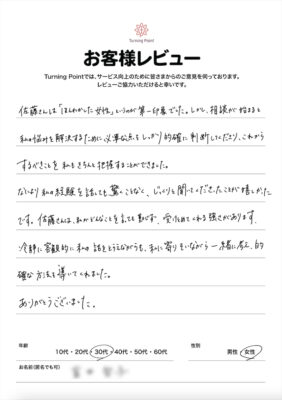 Turning Point
お客様レビュー
Turning Pointでは、サービス向上のために皆さまからのご意見を伺っております。
レビューご協力いただけると幸いです。
佐藤さんは「ほんわかした女性」というのが第一印象でした。しかし、相談が始まると
私の悩みを解決するために、必要な点をしっかり的確に判断してくださり、これから
するべきことを私もきちんと把握することができました。
なにより私の経験を話しても驚くことなく、じっくりと聞いてくださったことが嬉しかった
です。佐藤さんは、私がどんなことを言っても動じず、受け止めてくれる強さがあります。
冷静に客観的に私の話をとらえながらも、私に寄りそいながら一緒に考え、的
確な方法を導いてくれました。
ありがとうございました。
年齢
性別
10代・20代・30代・40代・50代・60代
男性・女性
お名前(匿名でも可)